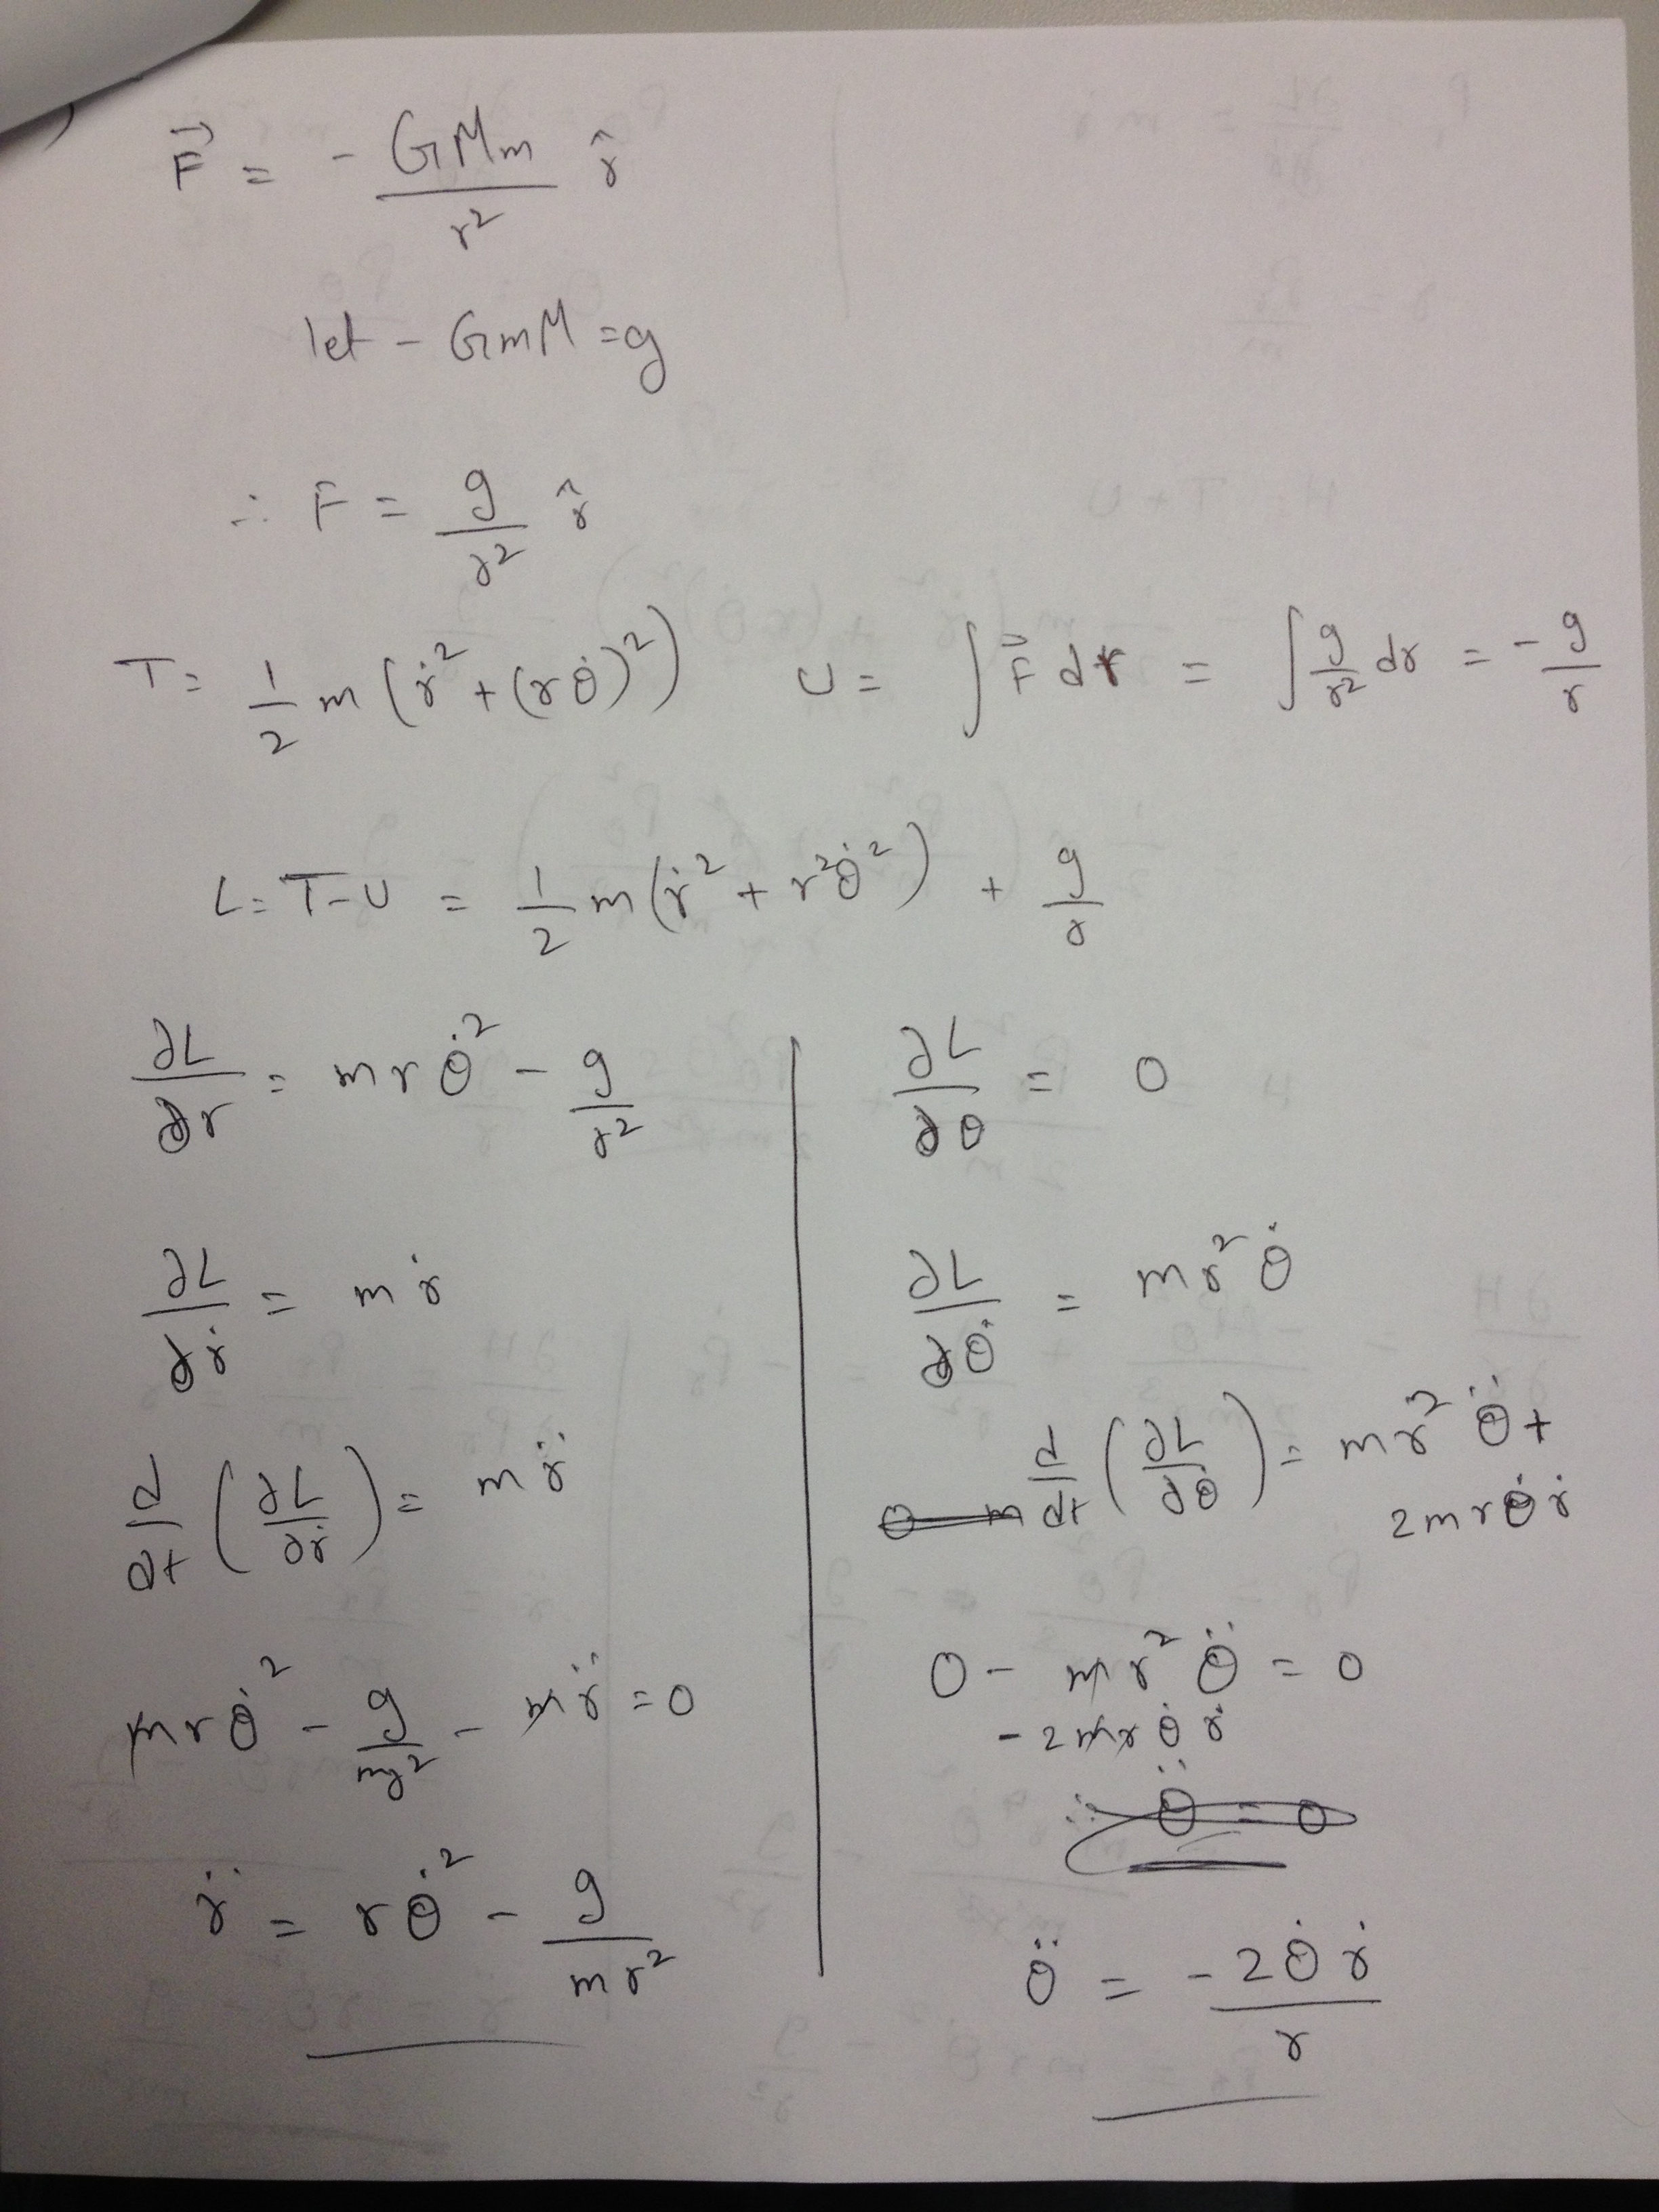 F⃗ = - GMm/r² r̂
let - GmM = g
∴ F = g/r² r̂
T = 1/2 m (ṙ² + (rθ̇)²) U = ∫ F⃗ dr = ∫ g/r² dr = - g/r
L = T - U = 1/2 m (ṙ² + r²θ̇²) + g/r
∂L/∂r = m r θ̇² - g/r²
∂L/∂ṙ = m ṙ
d/dt (∂L/∂ṙ) = m r̈
m r θ̇² - g/mr² - m r̈ = 0
r̈ = r θ̇² - g/mr²
∂L/∂θ = 0
∂L/∂θ̇ = m r² θ̇
d/dt (∂L/∂θ̇) = m r² θ̈ +
2 m r θ̇ ṙ
0 - m r² θ̈ = 0
- 2 m r θ̇ ṙ
∴ θ̈ = 0
θ̈ = - 2 θ̇ ṙ / r